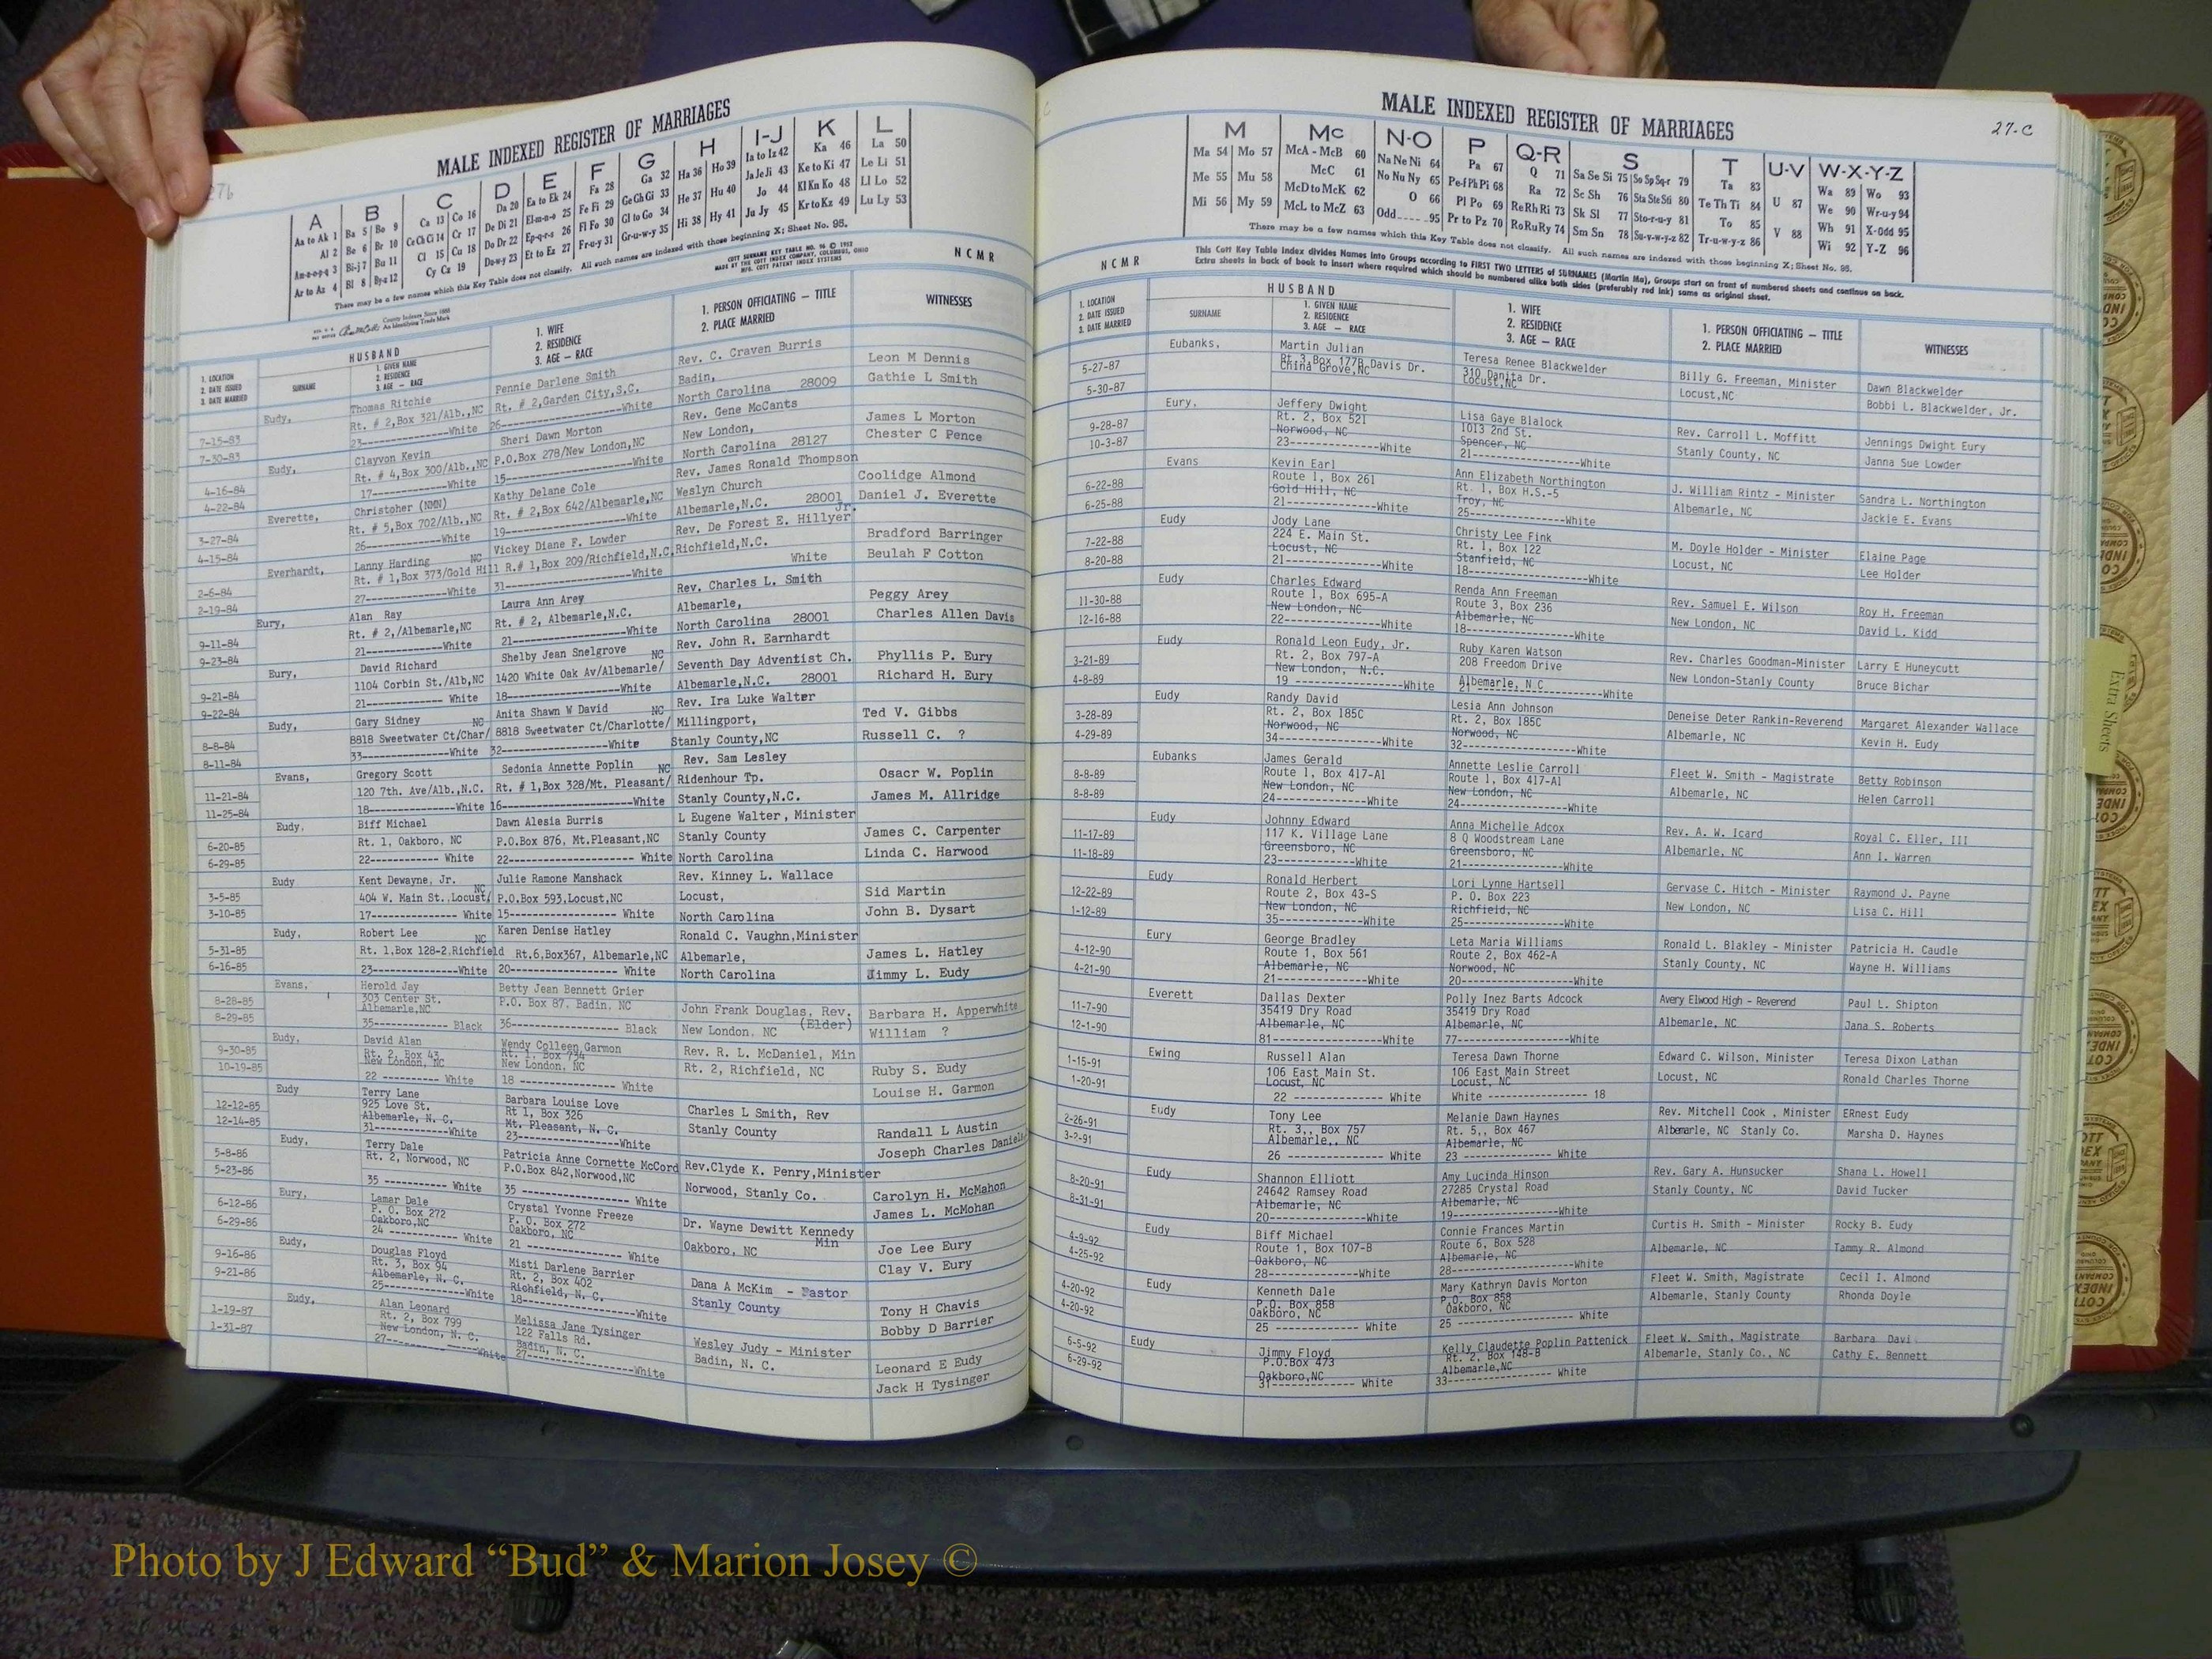 27b
MALE INDEXED REGISTER OF MARRIAGES
A B C D E F G H I-J K L
Aa to Ak 1 Ba 5 Bo 9 Ca 13 Co 16 Da 20 Ea to Ek 24 Fa 28 Ga 32 Ha 36 Ho 39 Ia to Iz 42 Ka 46 La 50
Al 2 Be 6 Br 10 Ce Ch Ci 14 Cr 17 De Di 21 El-m-n-o 25 Fe Fi 29 Ge Gh Gi 33 He 37 Hu 40 Ja Je Ji 43 Ke to Ki 47 Le Li 51
Am-n-o-p-q 3 Bi-j 7 Bu 11 Cl 15 Cu 18 Do Dr 22 Ep-q-r-s 26 Fl Fo 30 Gl to Go 34 Hi 38 Hy 41 Jo 44 Kl Kn Ko 48 Ll Lo 52
Ar to Az 4 Bl 8 By-z 12 Cy Cz 19 Du-w-y 23 Et to Ez 27 Fr-u-y 31 Gr-u-w-y 35 Ju Jy 45 Kr to Kz 49 Lu Ly 53
There may be a few names which this Key Table does not classify. All such names are indexed with those beginning X; Sheet No. 95.
County Indexes Since 1888
An Identifying Trade Mark
COTT SURNAME KEY TABLE NO. 96 © 1952
MADE BY THE COTT INDEX COMPANY, COLUMBUS, OHIO
MFG. COTT PATENT INDEX SYSTEMS
NCMR
1. LOCATION
2. DATE ISSUED
3. DATE MARRIED
HUSBAND
SURNAME
1. GIVEN NAME
2. RESIDENCE
3. AGE — RACE
1. WIFE
2. RESIDENCE
3. AGE — RACE
1. PERSON OFFICIATING — TITLE
2. PLACE MARRIED
WITNESSES
Eudy, Thomas Ritchie Pennie Darlene Smith Rev. C. Craven Burris Leon M Dennis
7-15-83 Rt. # 2,Box 321/Alb.,NC Rt. # 2,Garden City,S.C. Badin, Gathie L Smith
7-30-83 23--------------White 26--------------------White North Carolina 28009
Eudy, Clayvon Kevin Sheri Dawn Morton Rev. Gene McCants James L Morton
4-16-84 Rt. # 4,Box 300/Alb.,NC P.O.Box 278/New London,NC New London, Chester C Pence
4-22-84 17--------------White 15--------------------White North Carolina 28127
Everette, Christoher (NMN) Kathy Delane Cole Rev. James Ronald Thompson Coolidge Almond
3-27-84 Rt. # 5,Box 702/Alb.,NC Rt. # 2,Box 642/Albemarle,NC Weslyn Church Daniel J. Everette
4-15-84 26--------------White 19--------------------White Albemarle,N.C. 28001
Everhardt, Lanny Harding NC Vickey Diane F. Lowder Rev. De Forest E. Hillyer Jr. Bradford Barringer
2-6-84 Rt. # 1,Box 373/Gold Hill R.# 1,Box 209/Richfield,N.C. Richfield,N.C. Beulah F Cotton
2-19-84 27--------------White 31--------------------White White
Eury, Alan Ray Laura Ann Arey Rev. Charles L. Smith Peggy Arey
9-11-84 Rt. # 2,/Albemarle,NC Rt. # 2, Albemarle,N.C. Albemarle, Charles Allen Davis
9-23-84 21--------------White 21--------------------White North Carolina 28001
Eury, David Richard Shelby Jean Snelgrove NC Rev. John R. Earnhardt Phyllis P. Eury
9-21-84 1104 Corbin St./Alb,NC 1420 White Oak Av/Albemarle/ Seventh Day Adventist Ch. Richard H. Eury
9-22-84 21------------- White 18--------------------White Albemarle,N.C. 28001
Eudy, Gary Sidney NC Anita Shawn W David NC Rev. Ira Luke Walter Ted V. Gibbs
8-8-84 8818 Sweetwater Ct/Char/ 8818 Sweetwater Ct/Charlotte/ Millingport, Russell C. ?
8-11-84 33--------------White 32--------------------White Stanly County,NC
Evans, Gregory Scott Sedonia Annette Poplin NC Rev. Sam Lesley Osacr W. Poplin
11-21-84 120 7th. Ave/Alb.,N.C. Rt. # 1,Box 328/Mt. Pleasant/ Ridenhour Tp. James M. Allridge
11-25-84 18--------------White 16--------------------White Stanly County,N.C.
Eudy, Biff Michael Dawn Alesia Burris L Eugene Walter, Minister James C. Carpenter
6-20-85 Rt. 1, Oakboro, NC P.O.Box 876, Mt.Pleasant,NC Stanly County Linda C. Harwood
6-29-85 22------------ White 22-------------------- White North Carolina
Eudy Kent Dewayne, Jr. Julie Ramone Manshack Rev. Kinney L. Wallace Sid Martin
3-5-85 404 W. Main St.,Locust/ NC P.O.Box 593,Locust,NC Locust, John B. Dysart
3-10-85 17-------------- White 15---------------- White North Carolina
Eudy, Robert Lee NC Karen Denise Hatley Ronald C. Vaughn,Minister James L. Hatley
5-31-85 Rt. 1,Box 128-2,Richfield Rt.6,Box367, Albemarle,NC Albemarle, Jimmy L. Eudy
6-16-85 23--------------White 20----------------- White North Carolina
Evans, Herold Jay Betty Jean Bennett Grier
8-28-85 303 Center St. P.O. Box 87. Badin, NC John Frank Douglas, Rev. Barbara H. Apperwhite
8-29-85 Albemarle,NC New London, NC (Elder) William ?
35------------ Black 36---------------- Black
Eudy, David Alan Wendy Colleen Garmon
9-30-85 Rt. 2, Box 43 Rt. 1, Box 734 Rev. R. L. McDaniel, Min Ruby S. Eudy
10-19-85 New London, NC New London, NC Rt. 2, Richfield, NC Louise H. Garmon
22 ---------- White 18 --------------- White
Eudy Terry Lane Barbara Louise Love
12-12-85 925 Love St. Rt 1, Box 326 Charles L Smith, Rev Randall L Austin
12-14-85 Albemarle, N. C. Mt. Pleasant, N. C. Stanly County Joseph Charles Daniels
31--------------White 23------------------White
Eudy, Terry Dale Patricia Anne Cornette McCord Rev.Clyde K. Penry,Minister
5-8-86 Rt. 2, Norwood, NC P.O.Box 842,Norwood,NC Norwood, Stanly Co. Carolyn H. McMahon
5-23-86 35 ----------- White 35 ----------------- White James L. McMohan
Eury, Lamar Dale Crystal Yvonne Freeze
6-12-86 P. O. Box 272 P. O. Box 272 Dr. Wayne Dewitt Kennedy Min Joe Lee Eury
6-29-86 Oakboro,NC Oakboro, NC Oakboro, NC Clay V. Eury
24 ----------- White 21 ---------------- White
Eudy, Douglas Floyd Misti Darlene Barrier
9-16-86 Rt. 3, Box 94 Rt. 2, Box 402 Dana A McKim - Pastor Tony H Chavis
9-21-86 Albemarle, N. C. Richfield, N. C. Stanly County Bobby D Barrier
25--------------White 18------------------White
Eudy, Alan Leonard Melissa Jane Tysinger
1-19-87 Rt. 2, Box 799 122 Falls Rd. Wesley Judy - Minister Leonard E Eudy
1-31-87 New London, N. C. Badin, N. C. Badin, N. C. Jack H Tysinger
27--------------White 27------------------White
27-C
MALE INDEXED REGISTER OF MARRIAGES
M Mc N-O P Q-R S T U-V W-X-Y-Z
Ma 54 Mo 57 McA - McB 60 Na Ne Ni 64 Pa 67 Q 71 Sa Se Si 75 So Sp Sq-r 79 Ta 83 Wa 89 Wo 93
Me 55 Mu 58 McC 61 No Nu Ny 65 Pe-f Ph Pi 68 Ra 72 Sc Sh 76 Sta Ste Sti 80 Te Th Ti 84 U 87 We 90 Wr-u-y 94
Mi 56 My 59 McD to McK 62 O 66 Pl Po 69 Re Rh Ri 73 Sk Sl 77 Sto-r-u-y 81 To 85 Wh 91 X-Odd 95
McL to McZ 63 Odd 95 Pr to Pz 70 Ro Ru Ry 74 Sm Sn 78 Su-v-w-y-z 82 Tr-u-w-y-z 86 V 88 Wi 92 Y-Z 96
There may be a few names which this Key Table does not classify. All such names are indexed with those beginning X; Sheet No. 95.
This Cott Key Table Index divides Names into Groups according to FIRST TWO LETTERS of SURNAMES (Martin Ma), Groups start on front of numbered sheets and continue on back.
Extra sheets in back of book to insert where required which should be numbered alike both sides (preferably red ink) same as original sheet.
NCMR
1. LOCATION
2. DATE ISSUED
3. DATE MARRIED
HUSBAND
SURNAME
1. GIVEN NAME
2. RESIDENCE
3. AGE — RACE
1. WIFE
2. RESIDENCE
3. AGE — RACE
1. PERSON OFFICIATING — TITLE
2. PLACE MARRIED
WITNESSES
Eubanks, Martin Julian Teresa Renee Blackwelder
5-27-87 Rt 3 Box 177B Davis Dr. 310 Danita Dr. Billy G. Freeman, Minister Dawn Blackwelder
5-30-87 China Grove,NC Locust,NC Locust,NC Bobbi L. Blackwelder, Jr.
Eury, Jeffery Dwight Lisa Gaye Blalock
9-28-87 Rt. 2, Box 521 1013 2nd St. Rev. Carroll L. Moffitt Jennings Dwight Eury
10-3-87 Norwood, NC Spencer, NC Stanly County, NC Janna Sue Lowder
23--------------White 21------------------White
Evans Kevin Earl Ann Elizabeth Northington
6-22-88 Route 1, Box 261 Rt. 1, Box H.S.-5 J. William Rintz - Minister Sandra L. Northington
6-25-88 Gold Hill, NC Troy, NC Albemarle, NC Jackie E. Evans
21--------------White 25------------------White
Eudy Jody Lane Christy Lee Fink
7-22-88 224 E. Main St. Rt. 1, Box 122 M. Doyle Holder - Minister Elaine Page
8-20-88 Locust, NC Stanfield, NC Locust, NC Lee Holder
21--------------White 18------------------White
Eudy Charles Edward Renda Ann Freeman
11-30-88 Route 1, Box 695-A Route 3, Box 236 Rev. Samuel E. Wilson Roy H. Freeman
12-16-88 New London, NC Albemarle, NC New London, NC David L. Kidd
22--------------White 18------------------White
Eudy Ronald Leon Eudy, Jr. Ruby Karen Watson
3-21-89 Rt. 2, Box 797-A 208 Freedom Drive Rev. Charles Goodman-Minister Larry E Huneycutt
4-8-89 New London, N.C. Albemarle, N.C New London-Stanly County Bruce Bichar
19 --------------White 21 -----------------White
Eudy Randy David Lesia Ann Johnson
3-28-89 Rt. 2, Box 185C Rt. 2, Box 185C Deneise Deter Rankin-Reverend Margaret Alexander Wallace
4-29-89 Norwood, NC Norwood, NC Albemarle, NC Kevin H. Eudy
34--------------White 32------------------White
Eubanks James Gerald Annette Leslie Carroll
8-8-89 Route 1, Box 417-A1 Route 1, Box 417-A1 Fleet W. Smith - Magistrate Betty Robinson
8-8-89 New London, NC New London, NC Albemarle, NC Helen Carroll
24--------------White 24------------------White
Eudy Johnny Edward Anna Michelle Adcox
11-17-89 117 K. Village Lane 8 Q Woodstream Lane Rev. A. W. Icard Royal C. Eller, III
11-18-89 Greensboro, NC Greensboro, NC Albemarle, NC Ann I. Warren
23--------------White 21------------------White
Eudy Ronald Herbert Lori Lynne Hartsell
12-22-89 Route 2, Box 43-S P. O. Box 223 Gervase C. Hitch - Minister Raymond J. Payne
1-12-89 New London, NC Richfield, NC New London, NC Lisa C. Hill
35--------------White 25------------------White
Eury George Bradley Leta Maria Williams
4-12-90 Route 1, Box 561 Route 2, Box 462-A Ronald L. Blakley - Minister Patricia H. Caudle
4-21-90 Albemarle, NC Norwood, NC Stanly County, NC Wayne H. Williams
21--------------White 20------------------White
Everett Dallas Dexter Polly Inez Barts Adcock
11-7-90 35419 Dry Road 35419 Dry Road Avery Elwood High - Reverend Paul L. Shipton
12-1-90 Albemarle, NC Albemarle, NC Albemarle, NC Jana S. Roberts
81--------------White 77------------------White
Ewing Russell Alan Teresa Dawn Thorne
1-15-91 106 East Main St. 106 East Main Street Edward C. Wilson, Minister Teresa Dixon Lathan
1-20-91 Locust, NC Locust, NC Locust, NC Ronald Charles Thorne
22 -------------- White White ---------------- 18
Eudy Tony Lee Melanie Dawn Haynes
2-26-91 Rt. 3,, Box 757 Rt. 5,, Box 467 Rev. Mitchell Cook , Minister ERnest Eudy
3-2-91 Albemarle,, NC Albemarle, NC Albemarle, NC Stanly Co. Marsha D. Haynes
26 -------------- White 23 ------------- White
Eudy Shannon Elliott Amy Lucinda Hinson
8-20-91 24642 Ramsey Road 27285 Crystal Road Rev. Gary A. Hunsucker Shana L. Howell
8-31-91 Albemarle, NC Albemarle, NC Stanly County, NC David Tucker
20--------------White 19------------------White
Eudy Biff Michael Connie Frances Martin
4-9-92 Route 1, Box 107-B Route 6, Box 528 Curtis H. Smith - Minister Rocky B. Eudy
4-25-92 Oakboro, NC Albemarle, NC Albemarle, NC Tammy R. Almond
28--------------White 28------------------White
Eudy Kenneth Dale Mary Kathryn Davis Morton
4-20-92 P.O. Box 858 P.O. Box 858 Fleet W. Smith, Magistrate Cecil I. Almond
4-20-92 Oakboro, NC Oakboro, NC Albemarle, Stanly County Rhonda Doyle
25 -------------- White 25 --------------- White
Eudy Jimmy Floyd Kelly Claudette Poplin Pattenick
6-5-92 P.O.Box 473 Rt. 2, Box 148-B Fleet W. Smith, Magistrate Barbara Davi
6-29-92 Oakboro,NC Albemarle,NC Albemarle, Stanly Co., NC Cathy E. Bennett
31-------------- White 33---------------- White
Extra Sheets
Photo by J Edward “Bud” & Marion Josey ©